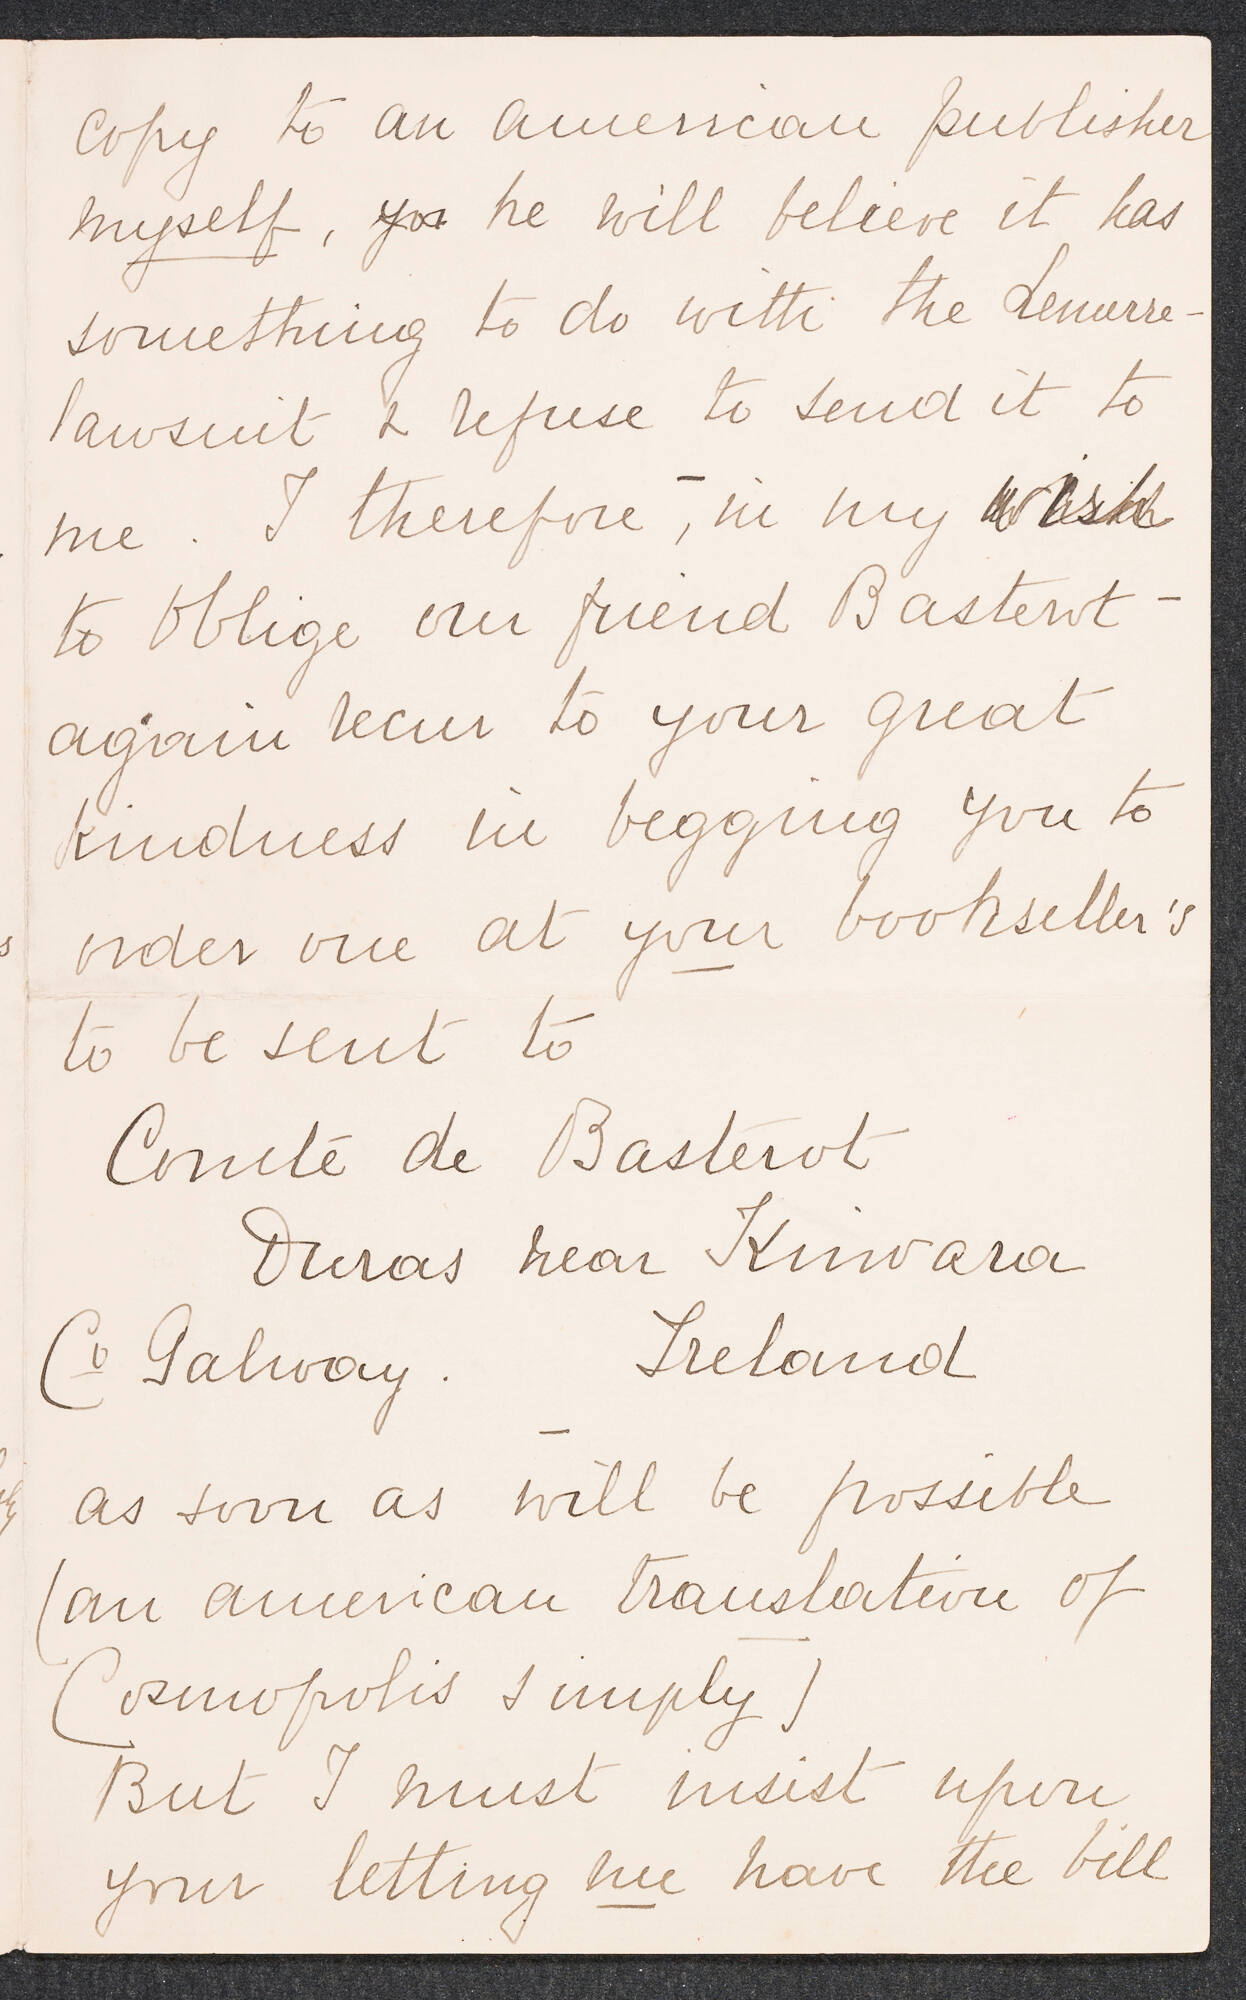 copy to an american publisher
myself, you he will believe it has
something to do with the Lemerre-
lawsuit & refuse to send it to
me. I therefore -, in my wish
to oblige our friend Basterot -
again recur to your great
kindness in begging you to
order one at your bookseller's
to be sent to
Comte de Basterot
Duras near Kinvara
Co Galway. Ireland
as soon as will be possible
(an american translation of
Cosmopolis simply)
But I must insist upon
your letting me have the bill